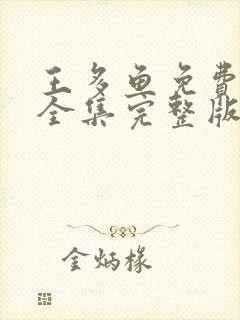 王多鱼免费
全集完整版
金炳椽